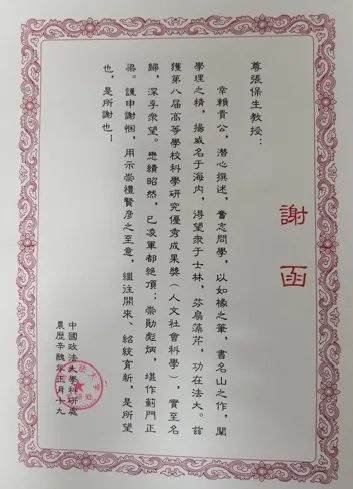 謝函
尊張保生教授：
幸賴貴公，潛心撰述，奮志問學，以如椽之筆，書名山之作，闡
學理之精，揚威名于海内，得望衆于士林，芬扇藻芹，功在法大。兹
獲第八届高等學校科學研究優秀成果獎（人文社會科學），實至名
歸，深孚衆望。懋績昭然，已凌軍都絶頂；崇勛彪炳，堪作薊門正
梁。謹申謝悃，用示崇禮賢彦之至意，繼往開來、紹統育新，是所望
也，是所謝也！
中國政法大學科研處
農歷辛醜年正月十九